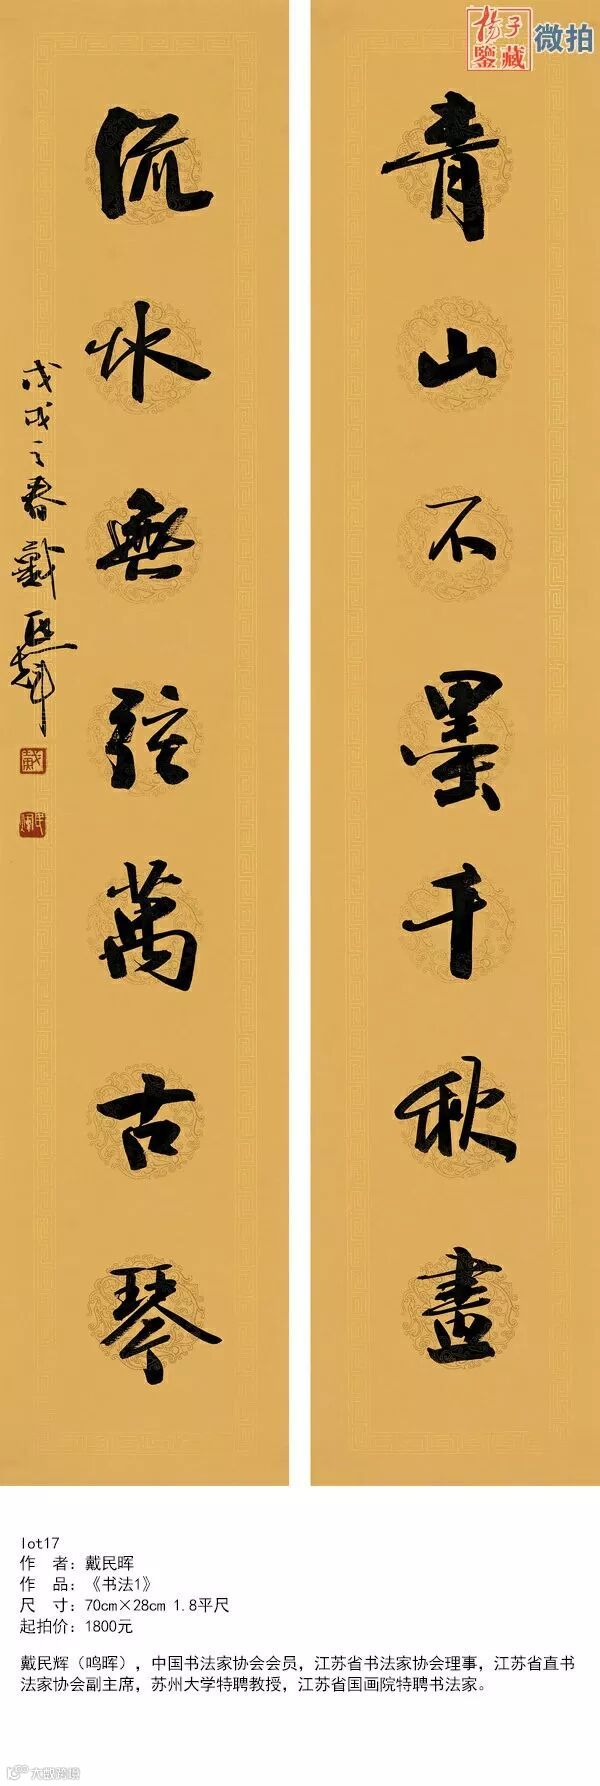 楊子
鑒藏
微拍
青山不墨千秋畫
流水無弦萬古琴
戊戌之春戴民辉
lot17
作 者：戴民晖
作 品：《书法1》
尺 寸：70cm×28cm 1.8平尺
起拍价：1800元
戴民辉（鸣晖），中国书法家协会会员，江苏省书法家协会理事，江苏省直书
法家协会副主席，苏州大学特聘教授，江苏省国画院特聘书法家。
大数跨境